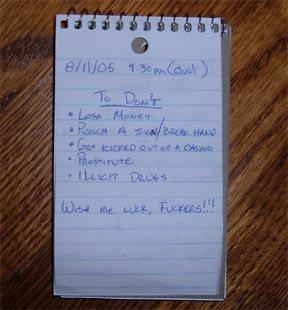 8/11/05 9:30pm (con't)
To Don't
• Lose Money
• Punch a sign/break hand
• Get kicked out of a casino
• Prostitute
• Illicit Drugs
Wish me luck, Fuckers!!!